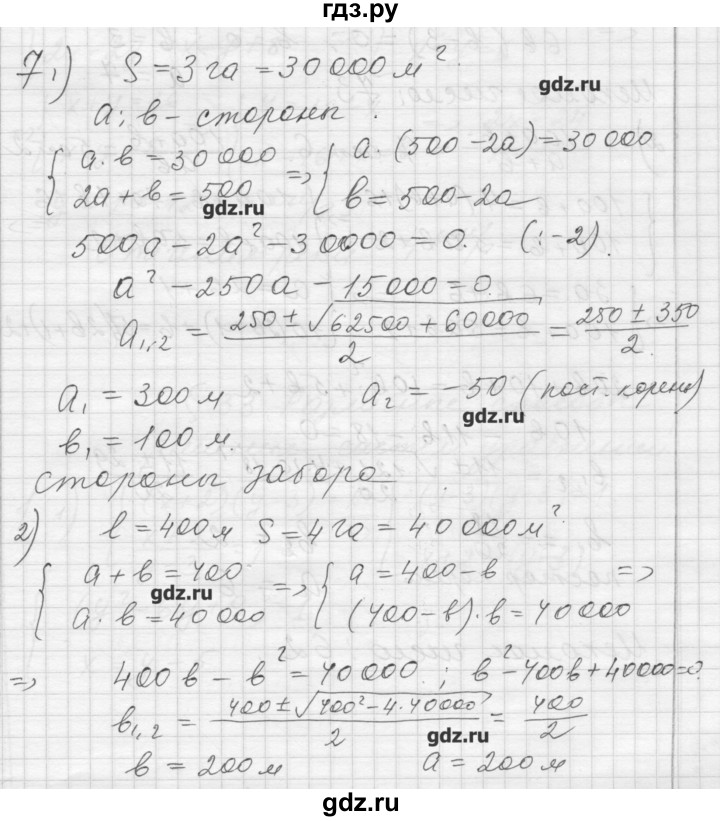 гдз.ру
7.1) S = 3 га = 30 000 м²
gdz.ru
a; в - стороны.
{ a·в = 30 000 => { a·(500 - 2a) = 30 000
{ 2a + в = 500 { в = 500 - 2a
gdz.ru
500a - 2a² - 30000 = 0. (:-2)
a² - 250a - 15000 = 0.
a₁,₂ = (250 ± √(62500 + 60000))/2 = (250 ± 350)/2
a₁ = 300 м a₂ = -50 (пост. корень)
gdz.ru
в₁ = 100 м.
стороны забора
2) l = 400 м S = 4 га = 40 000 м²
{ a + в = 400 => { a = 400 - в =>
gdz.ru
{ a·в = 40000 { (400 - в)·в = 40000
=> 400в - в² = 40000; в² - 400в + 40000 = 0.
в₁,₂ = (400 ± √(400² - 4·40000))/2 = 400/2
gdz.ru
в = 200 м a = 200 м
gdz.ru